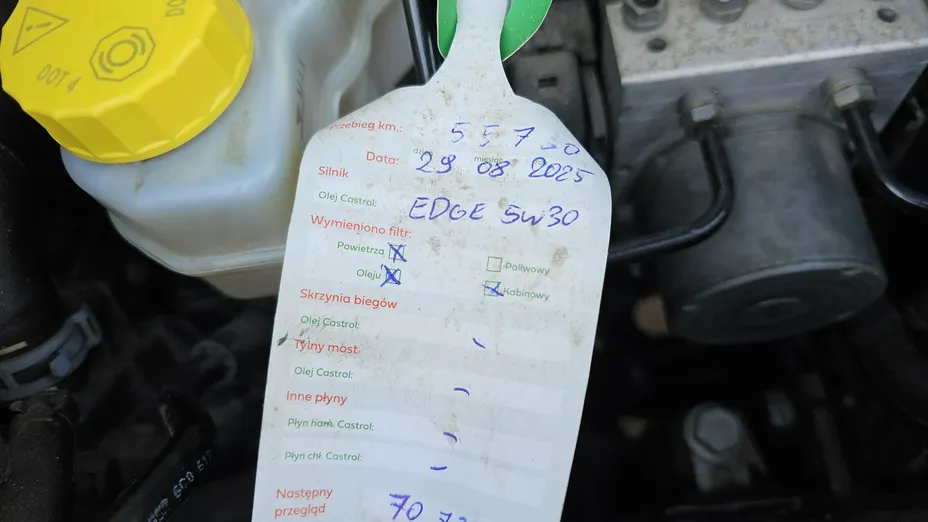 DOT 4
Przebieg km.: 5 5 7
Data: 29 08 2025
Silnik
Olej Castrol: EDGE 5W30
Wymieniono filtr:
Powietrza Paliwowy
Oleju Kabinowy
Skrzynia biegów
Olej Castrol: -
Tylny most
Olej Castrol: -
Inne płyny
Płyn ham. Castrol: -
Płyn chł. Castrol: -
Następny
przegląd 70